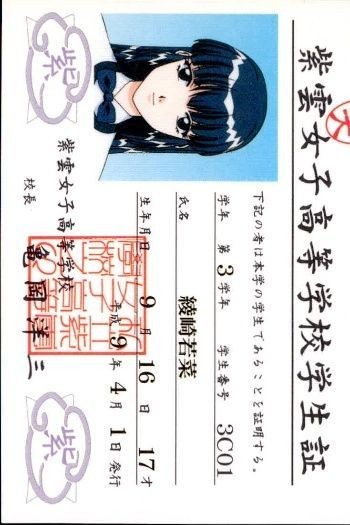 紫雲女子高等学校学生証
下記の者は本学の学生であることを証明する。
学年 第3学年 学生番号 3C01
氏名 綾崎若菜
生年月日 9月16日 17才
平成9年4月1日発行
紫雲女子高等学校
校長 亀岡洋三
紫
紫